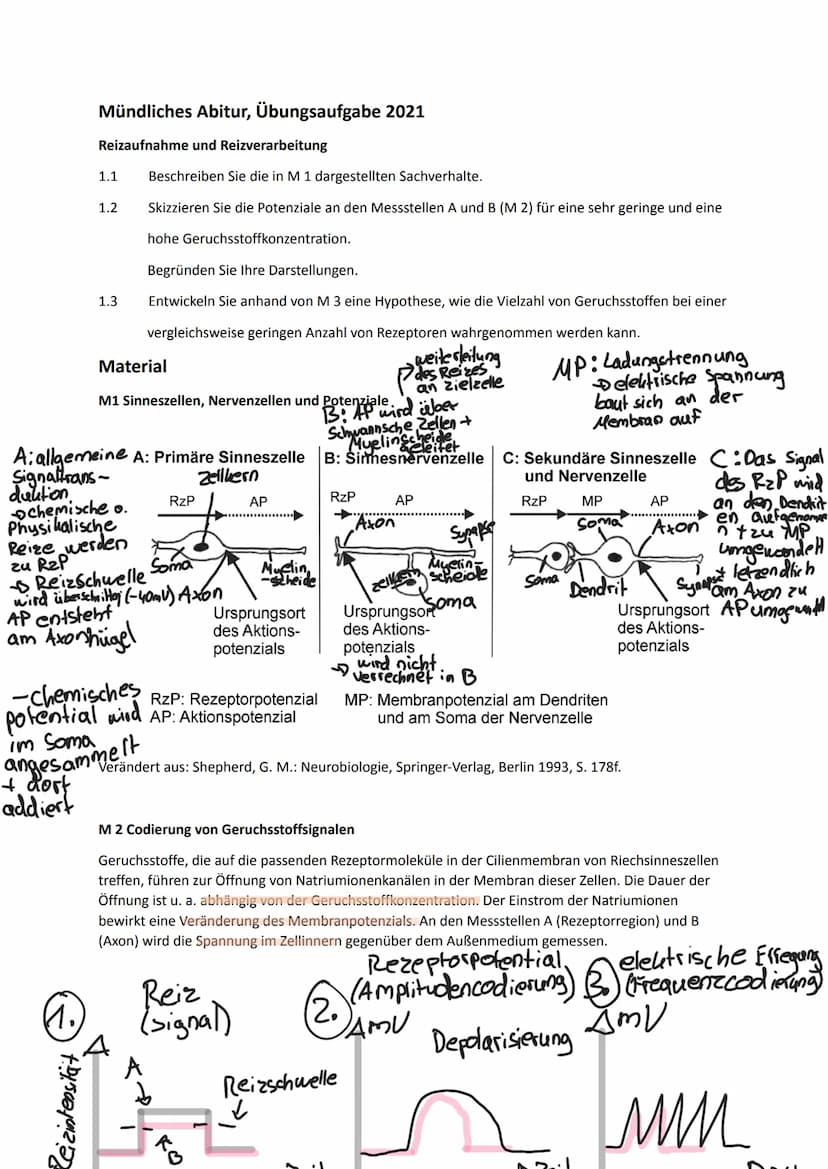 Mündliches Abitur, Übungsaufgabe 2021
Reizaufnahme und Reizverarbeitung
1.1 Beschreiben Sie die in M 1 dargestellten Sachverhalte.
1.2 Skizzieren Sie die Potenziale an den Messstellen A und B (M 2) für eine sehr geringe und eine
hohe Geruchsstoffkonzentration.
Begründen Sie Ihre Darstellungen.
1.3 Entwickeln Sie anhand von M 3 eine Hypothese, wie die Vielzahl von Geruchsstoffen bei einer
vergleichsweise geringen Anzahl von Rezeptoren wahrgenommen werden kann.
Material
weiterleitung
des Reizes
an zielzelle
MP: Ladungstrennung
→ elektrische Spannung
baut sich an der
Membran auf
M1 Sinneszellen, Nervenzellen und Potenziale
B: AP wird über
Schwannsche Zellen +
Myelinscheide
geleitet
A: allgemeine
Signaltrans-
duktion
→ chemische o.
Physikalische
Reize werden
zu RzP
→ Reizschwelle
wird überschritten (-40mV)
AP entsteht
am Axonhügel
A: Primäre Sinneszelle
zellkern
RzP AP
Soma
Myelin
-scheide
Axon
Ursprungsort
des Aktions-
potenzials
B: Sinnesnervenzelle
RzP AP
Axon
Synapse
Myelin-
scheide
zellkern
Soma
Ursprungsort
des Aktions-
potenzials
→ wird nicht
verrechnet in B
C: Sekundäre Sinneszelle
und Nervenzelle
RzP MP AP
Soma
Axon
Soma
Dendrit
Synapse
Ursprungsort
des Aktions-
potenzials
C: Das Signal
des RzP wird
an den Dendrit
en aufgenomme
n + zu MP
umgewandelt
+ letzendlich
am Axon zu
AP umgewandelt
- chemisches
potential wird
im Soma
angesammelt
+ dort
addiert
RzP: Rezeptorpotenzial
AP: Aktionspotenzial
MP: Membranpotenzial am Dendriten
und am Soma der Nervenzelle
Verändert aus: Shepherd, G. M.: Neurobiologie, Springer-Verlag, Berlin 1993, S. 178f.
M 2 Codierung von Geruchsstoffsignalen
Geruchsstoffe, die auf die passenden Rezeptormoleküle in der Cilienmembran von Riechsinneszellen
treffen, führen zur Öffnung von Natriumionenkanälen in der Membran dieser Zellen. Die Dauer der
Öffnung ist u. a. abhängig von der Geruchsstoffkonzentration. Der Einstrom der Natriumionen
bewirkt eine Veränderung des Membranpotenzials. An den Messstellen A (Rezeptorregion) und B
(Axon) wird die Spannung im Zellinnern gegenüber dem Außenmedium gemessen.
1.
Reiz
(Signal)
Reizintensität
A
Reizschwelle
B
2.
Rezeptorpotential
(Amplitudencodierung)
mV
Depolarisierung
3.
elektrische Erregung
(Frequenzcodierung)
mV